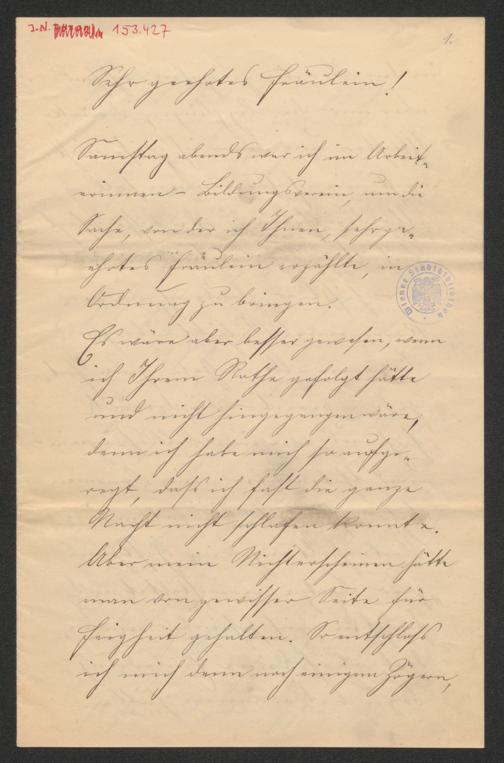 J.N. 153.427
1.
Sehr geehrtes Fräulein!
Samstag abends war ich im Arbeit-
erinnen-Bildungsverein, um die
Sache, von der ich Ihnen, sehr ge-
ehrtes Fräulein erzählte, in
Ordnung zu bringen.
Es wäre aber besser gewesen, wenn
ich Ihrem Rathe gefolgt hätte
und nicht hingegangen wäre,
denn ich habe mich so aufge-
regt, dass ich fast die ganze
Nacht nicht schlafen konnte.
Aber mein Nichterscheinen hätte
man von gewisser Seite für
Feigheit gehalten. So entschloss
ich mich denn nach einigem Zögern,
Wiener Stadtbibliothek